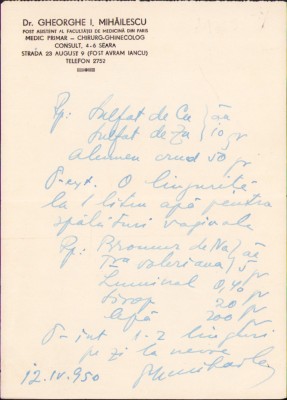 Dr. GHEORGHE I. MIHĂILESCU
FOST ASISTENT AL FACULTĂȚII DE MEDICINĂ DIN PARIS
MEDIC PRIMAR — CHIRURG-GHINECOLOG
CONSULT. 4-6 SEARA
STRADA 23 AUGUST 9 (FOST AVRAM IANCU)
TELEFON 2752
Rp: Sulfat de Cu } āā
Sulfat de Zn } 10 gr
Alumen crud 50 gr
S-ext. O linguriță
la 1 litru apă pentru
spălături vaginale
Rp: Bromur de Na } āā
Tra valeriana } 5 gr
Luminal 0,40 gr
Sirop 20 gr
Apă 200 gr
S-int 1-2 linguri
pe zi la nevoe
12.IV.950